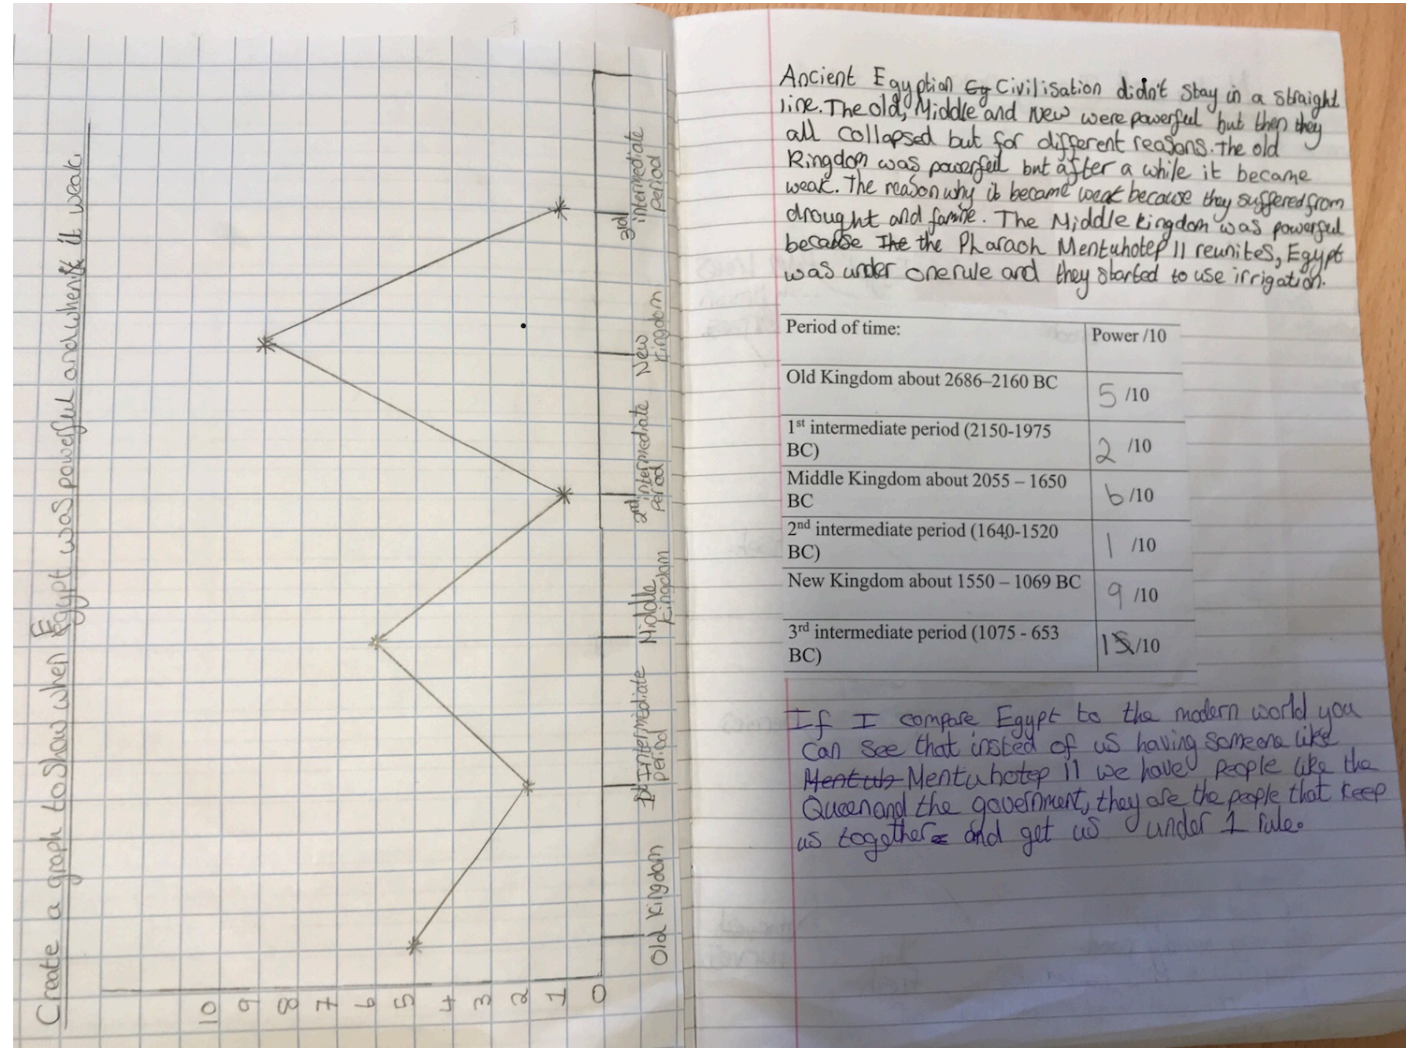 Create a graph to show when Egypt was powerful and when it weak.
10
9
8
7
6
5
4
3
2
1
0
Old Kingdom
1st Intermediate
period
Middle
Kingdom
2nd intermediate
period
New
Kingdom
3rd intermediate
period
Ancient Egyption Eg Civilisation didn't stay in a straight
line. The old, Middle and New were powerful but then they
all collapsed but for different reasons. The old
Kingdom was powerfull but after a while it became
weak. The reason why it became weak because they suffered from
drought and famine. The Middle kingdom was powerful
because The the Pharaoh Mentuhotep II reunites, Egypt
was under one rule and they started to use irrigation.
Period of time: Power /10
Old Kingdom about 2686–2160 BC 5 /10
1st intermediate period (2150-1975
BC) 2 /10
Middle Kingdom about 2055 – 1650
BC 6 /10
2nd intermediate period (1640-1520
BC) 1 /10
New Kingdom about 1550 – 1069 BC 9 /10
3rd intermediate period (1075 - 653
BC) 1 /10
If I compare Egypt to the modern world you
can see that insted of us having someone like
Mentuh Mentuhotep II we have people like the
Queen and the government, they are the people that keep
us together and get us under 1 rule.